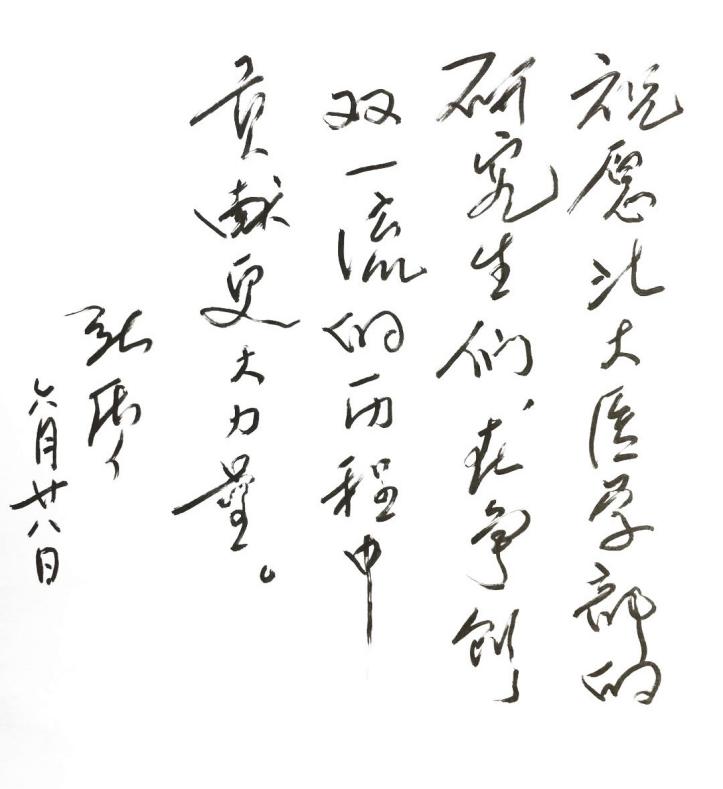 祝愿北大医学部的
研究生们在争创
双一流的历程中
贡献更大力量。
张
六月廿八日